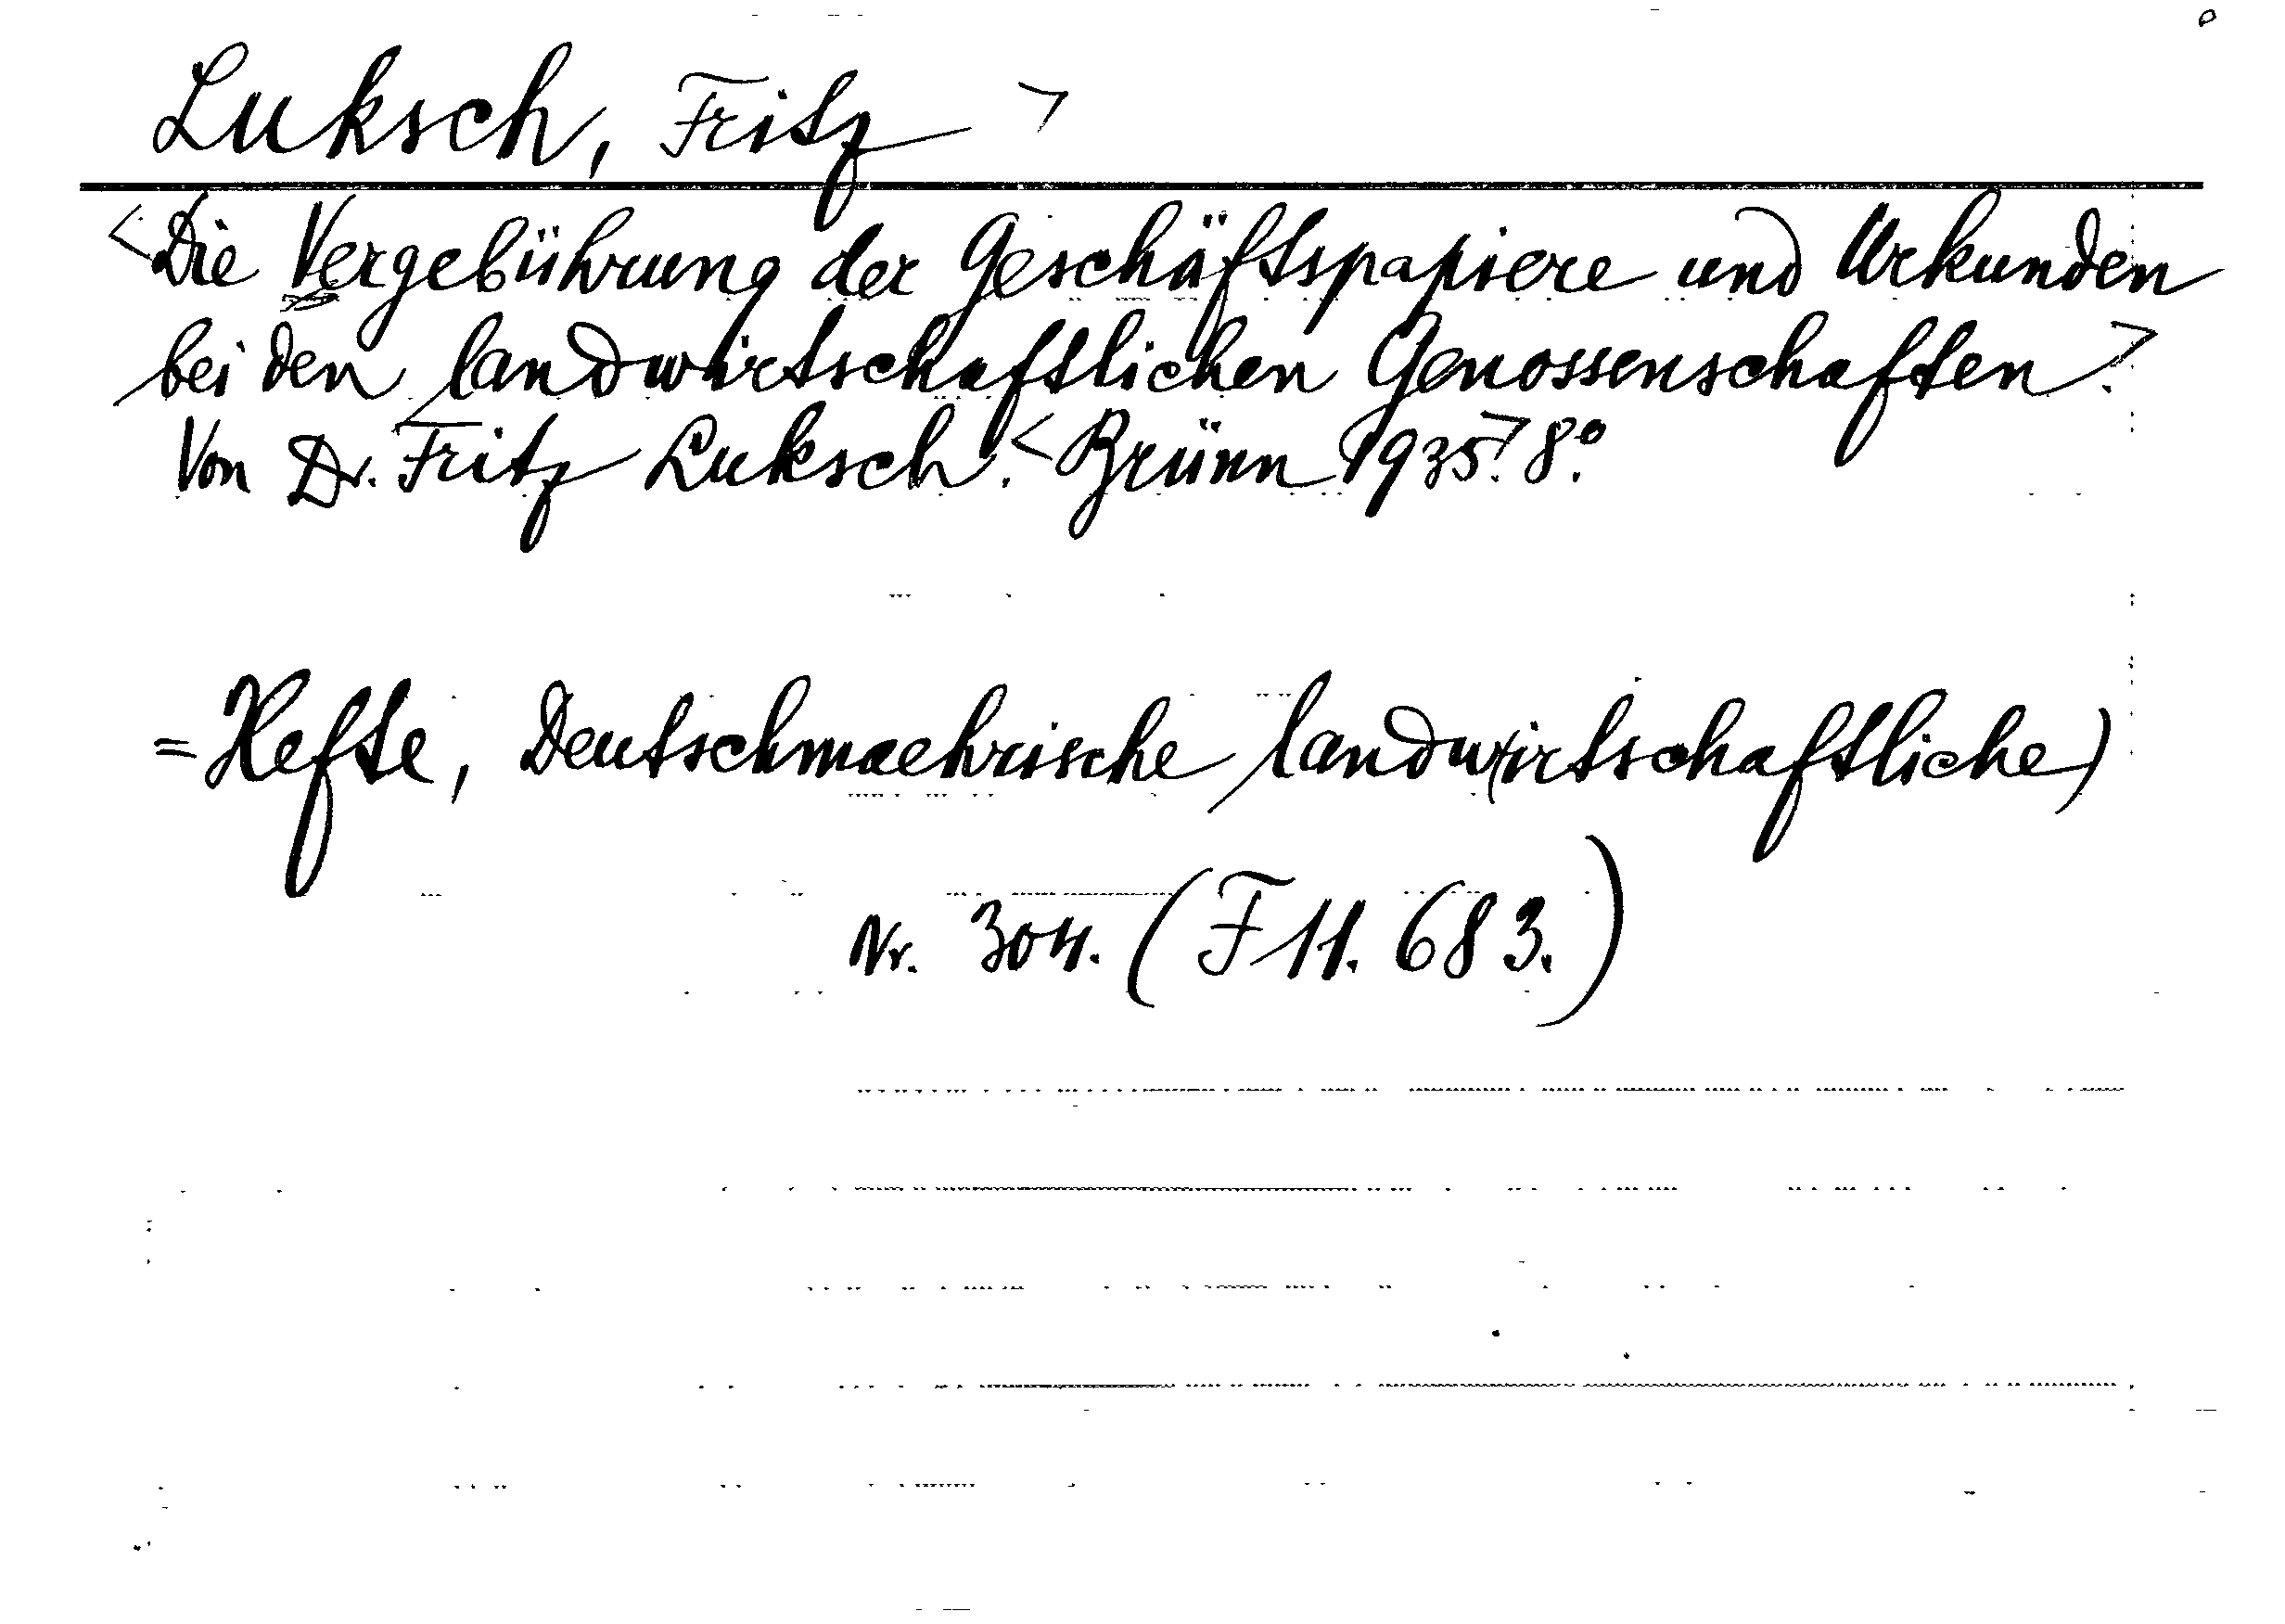 Luksch, Fritz >
<Die Vergebührung der Geschäftspapiere und Urkunden
bei den landwirtschaftlichen Genossenschaften.>
Von Dr. Fritz Luksch. <Brünn 1935.> 8°.
=Hefte, Deutschmaehrische landwirtschaftliche)
Nr. 304. (F 11. 683.)